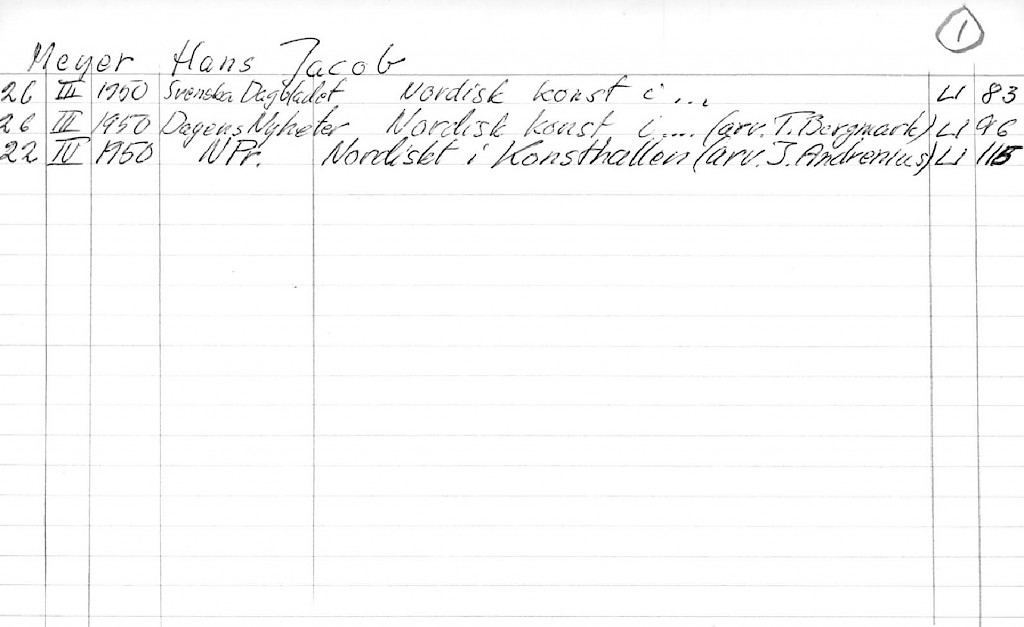 1
Meyer Hans Jacob
26 III 1950 Svenska Dagbladet Nordisk konst i ... LI 83
26 III 1950 Dagens Nyheter Nordisk konst i .... (arv. T. Bergmark) LI 96
22 IV 1950 NPr. Nordiskt i Konsthallen (arv. J. Andrenius) LI 115